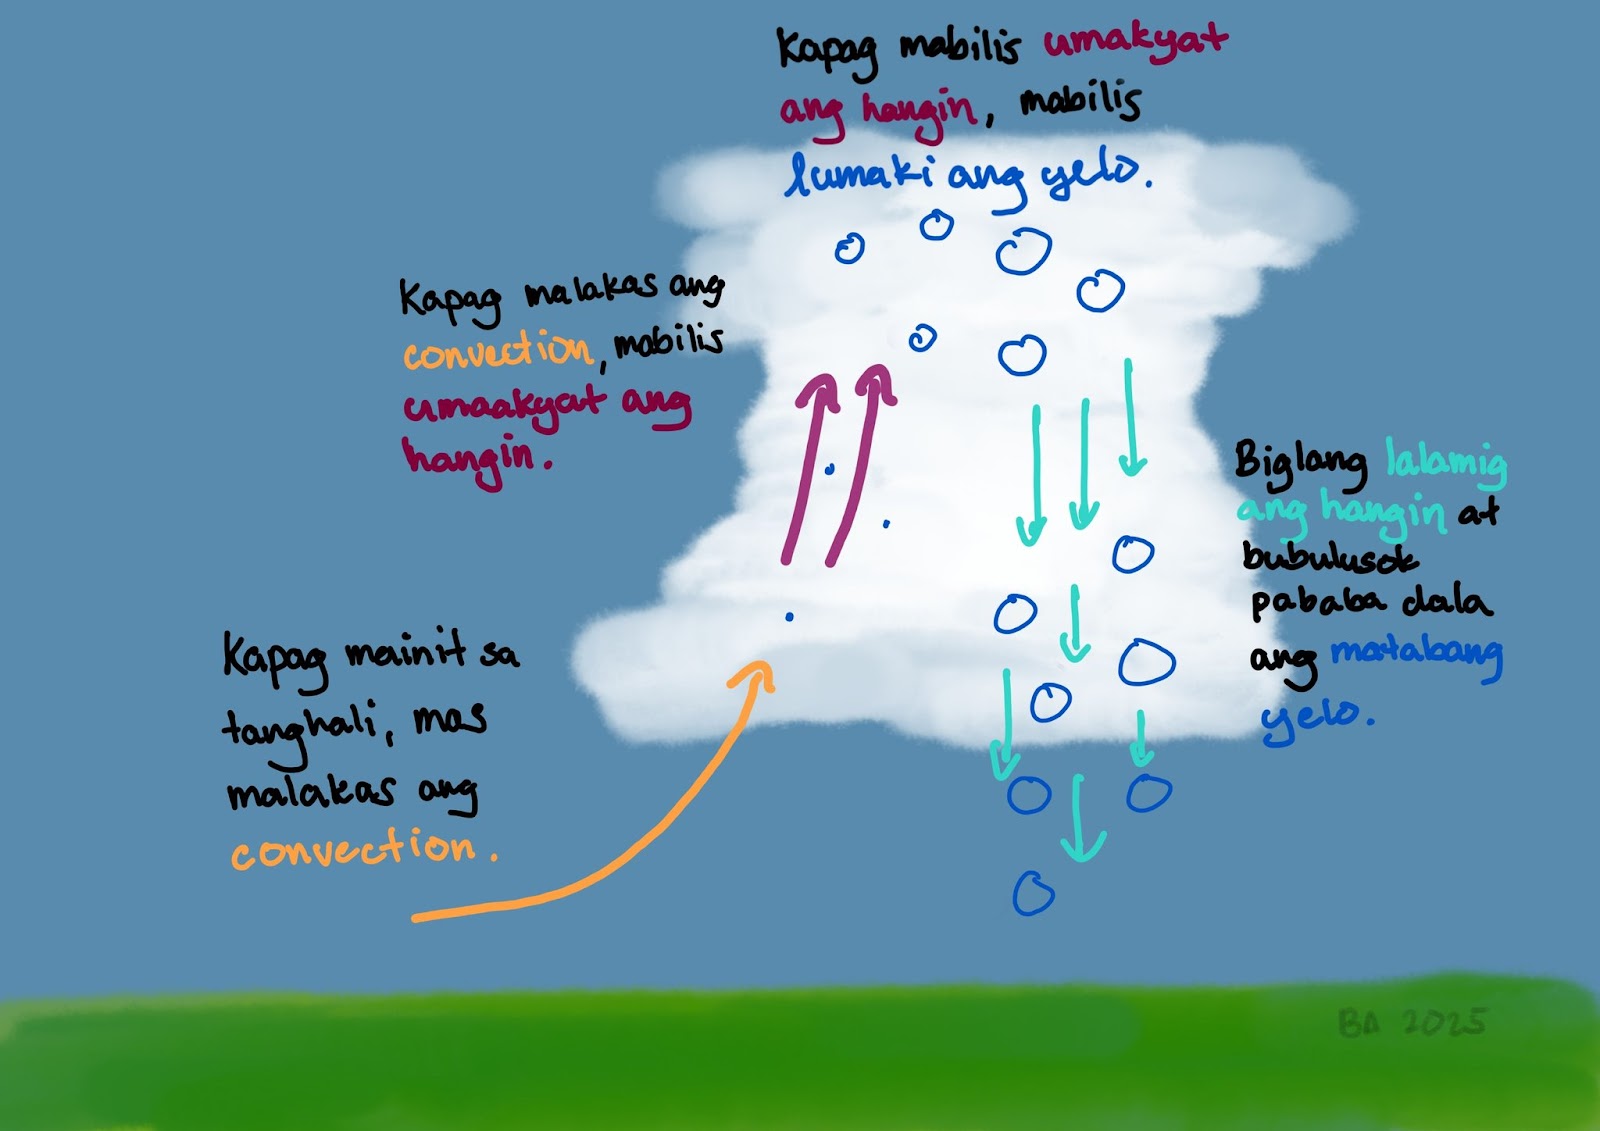 Kapag mabilis umakyat
ang hangin, mabilis
lumaki ang yelo.
Kapag malakas ang
convection, mabilis
umaakyat ang
hangin.
Biglang lalamig
ang hangin at
bubulusok
pababa dala
ang matabang
yelo.
Kapag mainit sa
tanghali, mas
malakas ang
convection.
BA 2025